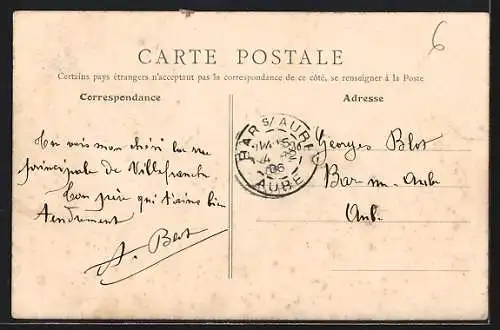 6
CARTE POSTALE
Certains pays étrangers n'acceptant pas la correspondance de ce côté, se renseigner à la Poste
Correspondance
Adresse
Tu vois mon chéri la rue
principale de Villefranche
Ton père qui t'aime bien
tendrement
A. Blot
BAR S/AUBE
AUBE
06
Georges Blot
Bar sur Aube
Aube